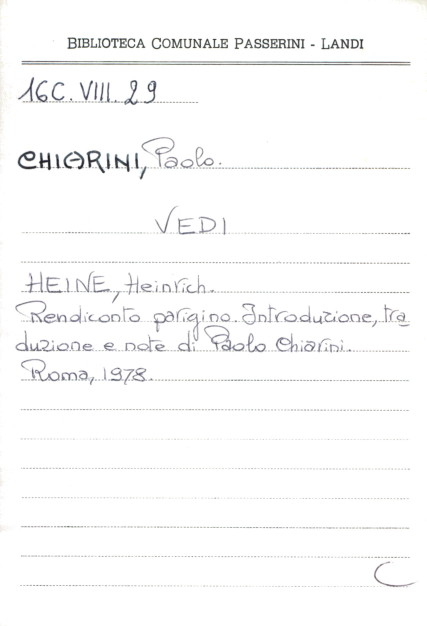 BIBLIOTECA COMUNALE PASSERINI - LANDI
16C. VIII. 29
CHIARINI, Paolo.
VEDI
HEINE, Heinrich.
Rendiconto parigino. Introduzione, tra
duzione e note di Paolo Chiarini.
Roma, 1978.